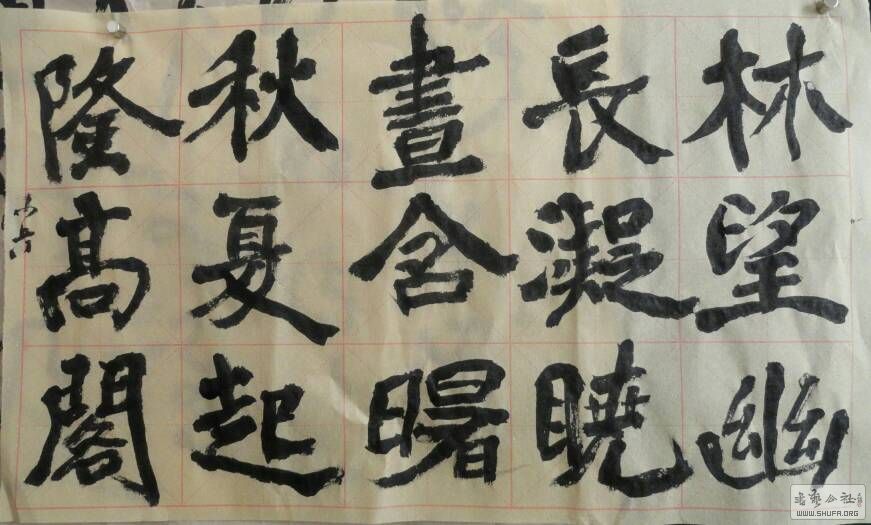 林望幽
長凝曉
晝含曙
秋夏起
隆髙閣
书艺公社
WWW.SHUFA.ORG